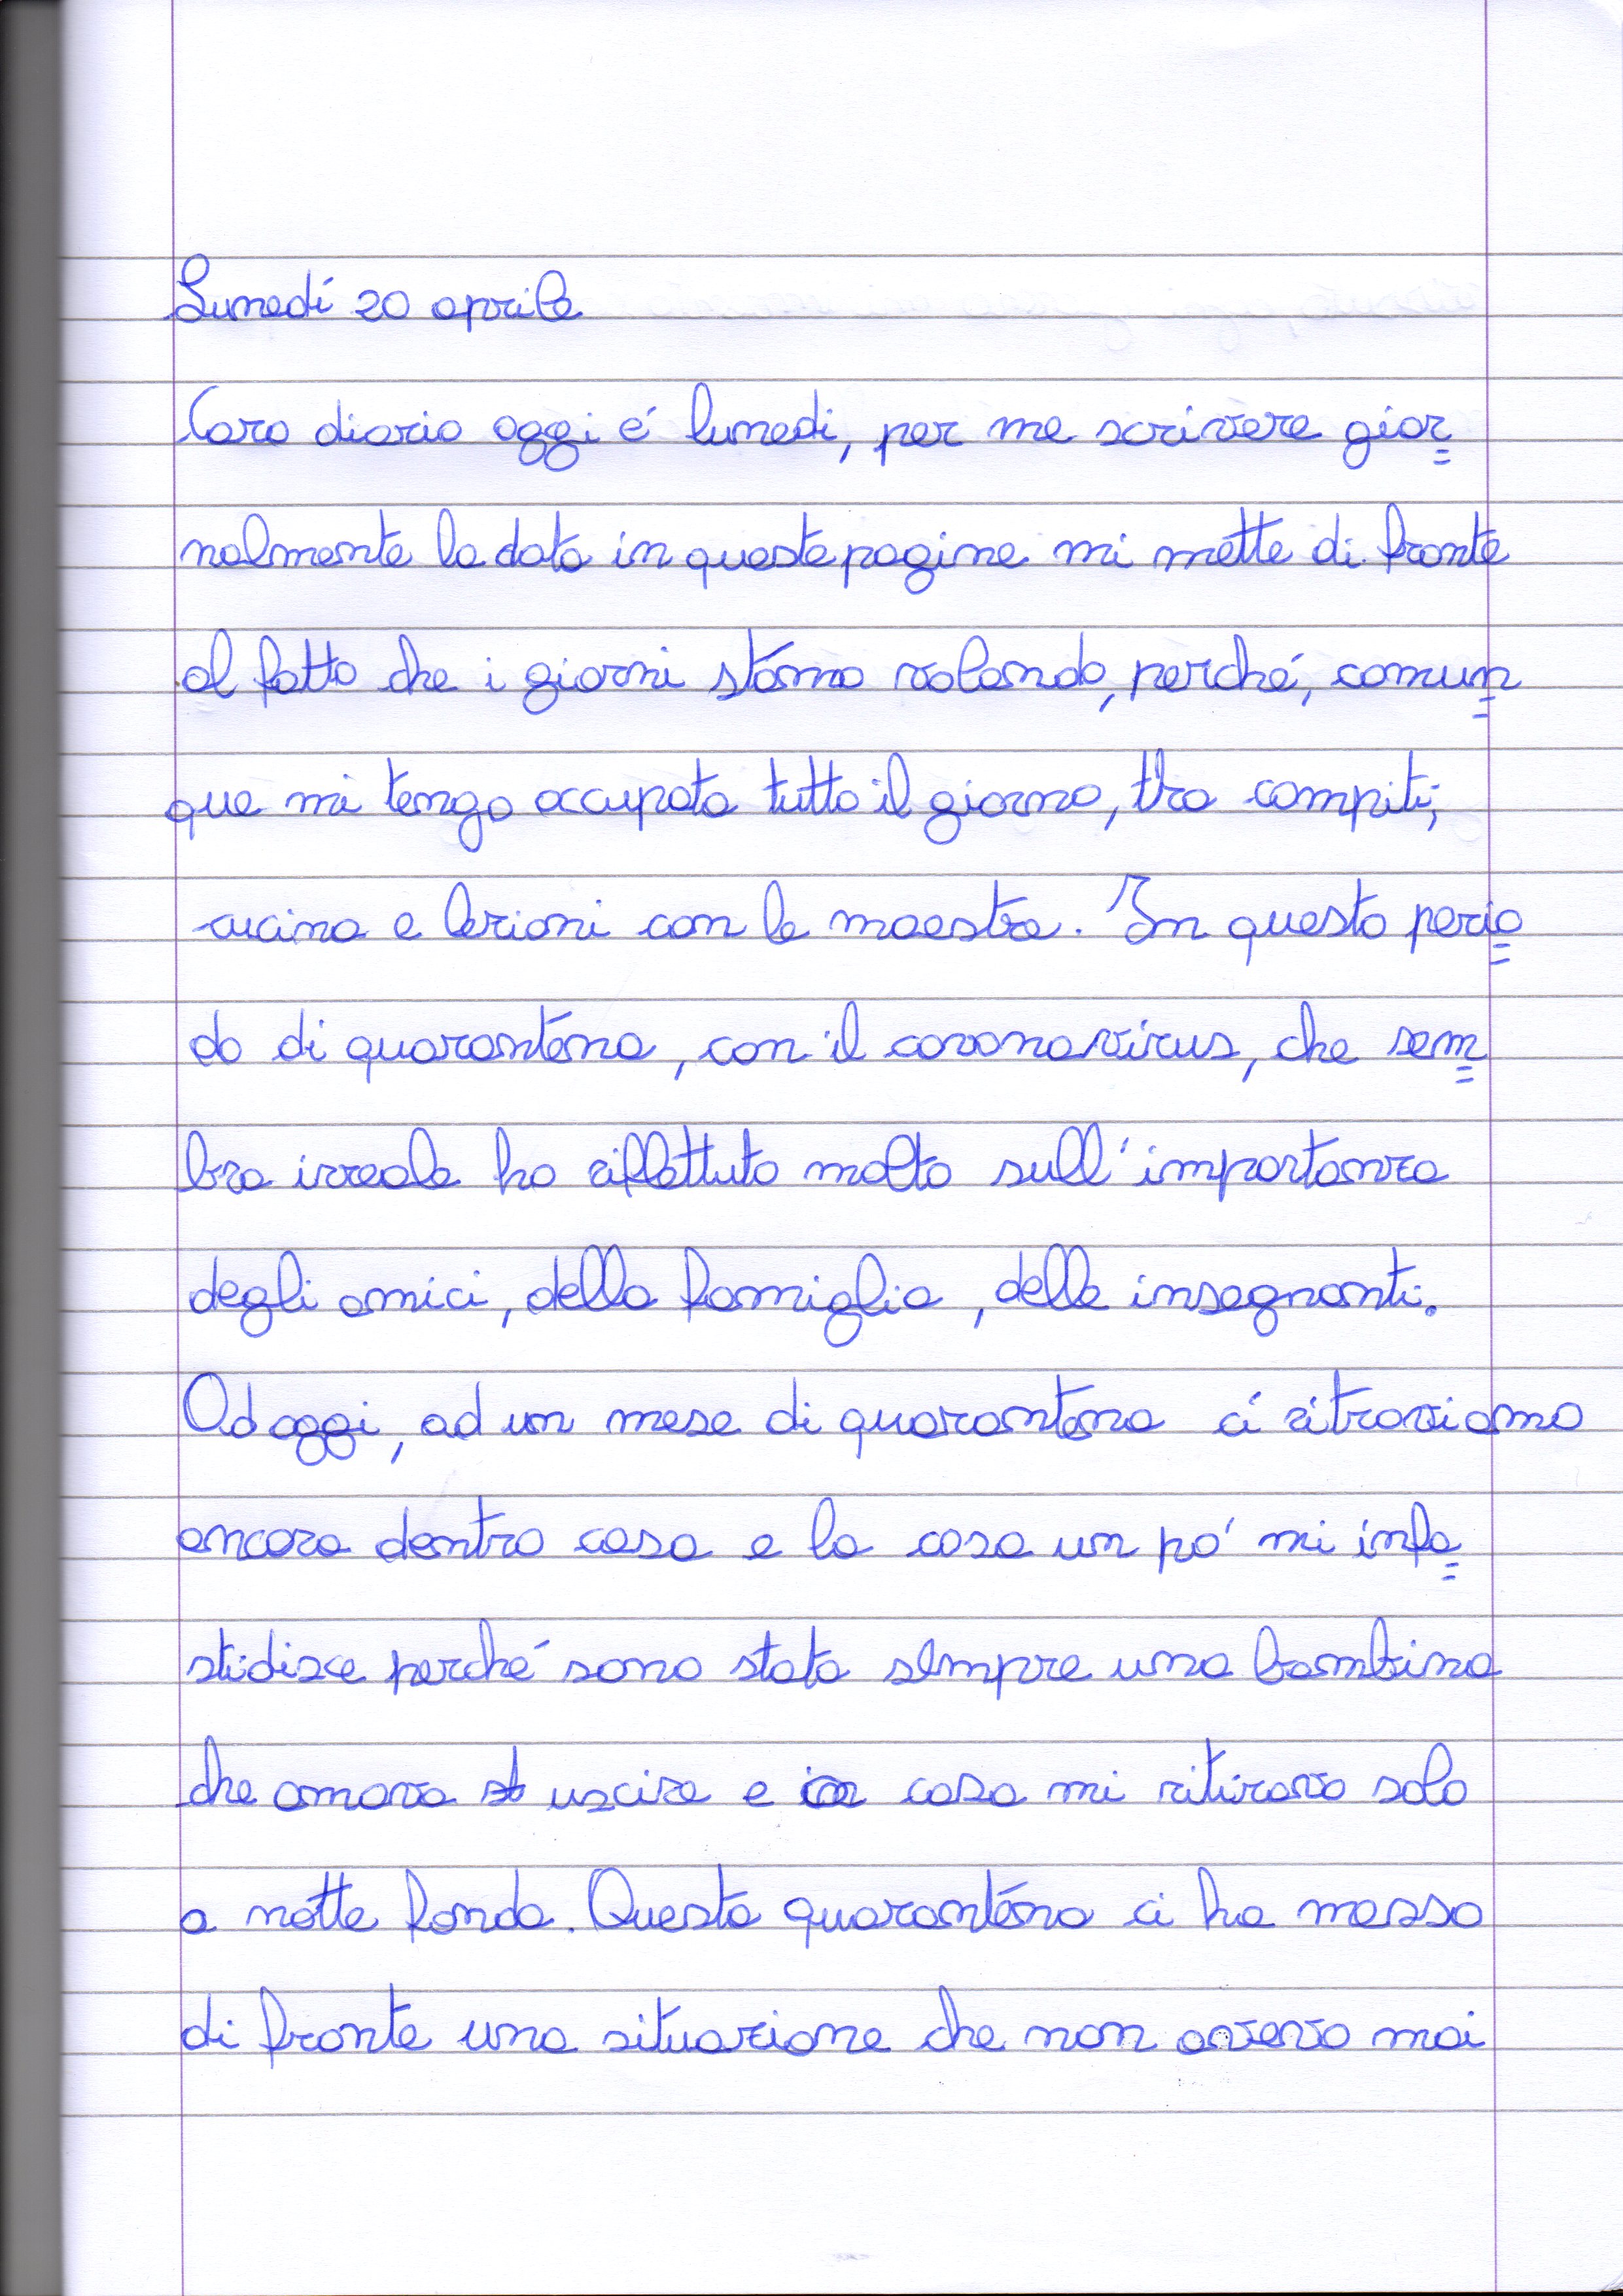 Lunedí 20 aprile
Caro diario oggi é lunedi, per me scrivere gior=
nalmente la data in queste pagine mi mette di fronte
al fatto che i giorni stanno volando, perché, comun=
que mi tengo occupata tutto il giorno, tra compiti,
cucina e lezioni con le maestre. In questo perio=
do di quarantena, con il coronavirus, che sem=
bra irreale ho riflettuto molto sull'importanza
degli amici, della famiglia, delle insegnanti.
Ad oggi, ad un mese di quarantena ci ritroviamo
ancora dentro casa e la cosa un po' mi infa=
stidisce perché sono stata sempre una bambina
che amava uscire e in casa mi ritiravo solo
a notte fonda. Questa quarantena ci ha messo
di fronte una situazione che non avevo mai